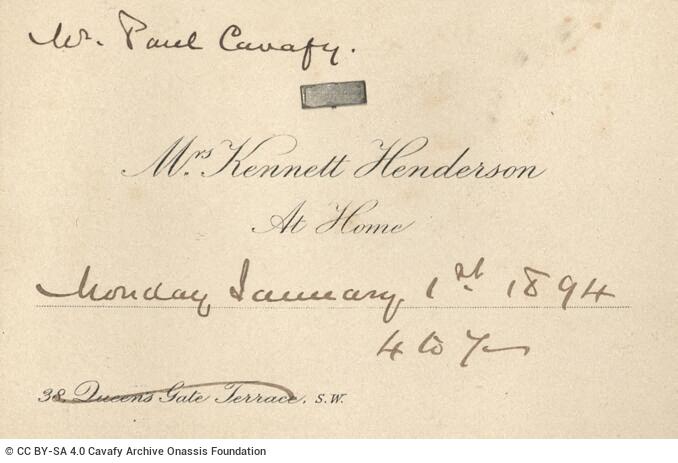 Mr. Paul Cavafy.
Mrs. Kennett Henderson
At Home
Monday January 1st 1894
4 to 7
38. Queen's Gate Terrace, S.W.
© CC BY-SA 4.0 Cavafy Archive Onassis Foundation